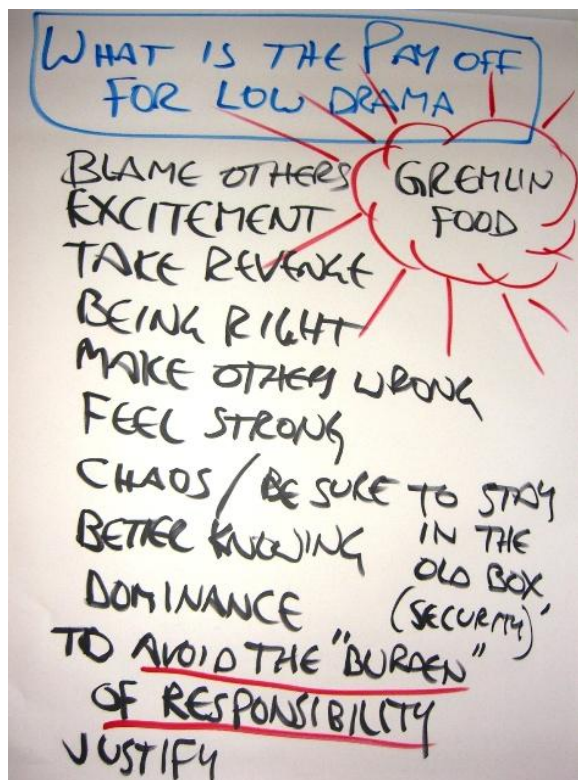 WHAT IS THE PAY OFF
FOR LOW DRAMA
GREMLIN
FOOD
BLAME OTHERS
EXCITEMENT
TAKE REVENGE
BEING RIGHT
MAKE OTHERS WRONG
FEEL STRONG
CHAOS / BE SURE TO STAY
IN THE
OLD BOX
(SECURITY)
BETTER KNOWING
DOMINANCE
TO AVOID THE "BURDEN"
OF RESPONSIBILITY
JUSTIFY